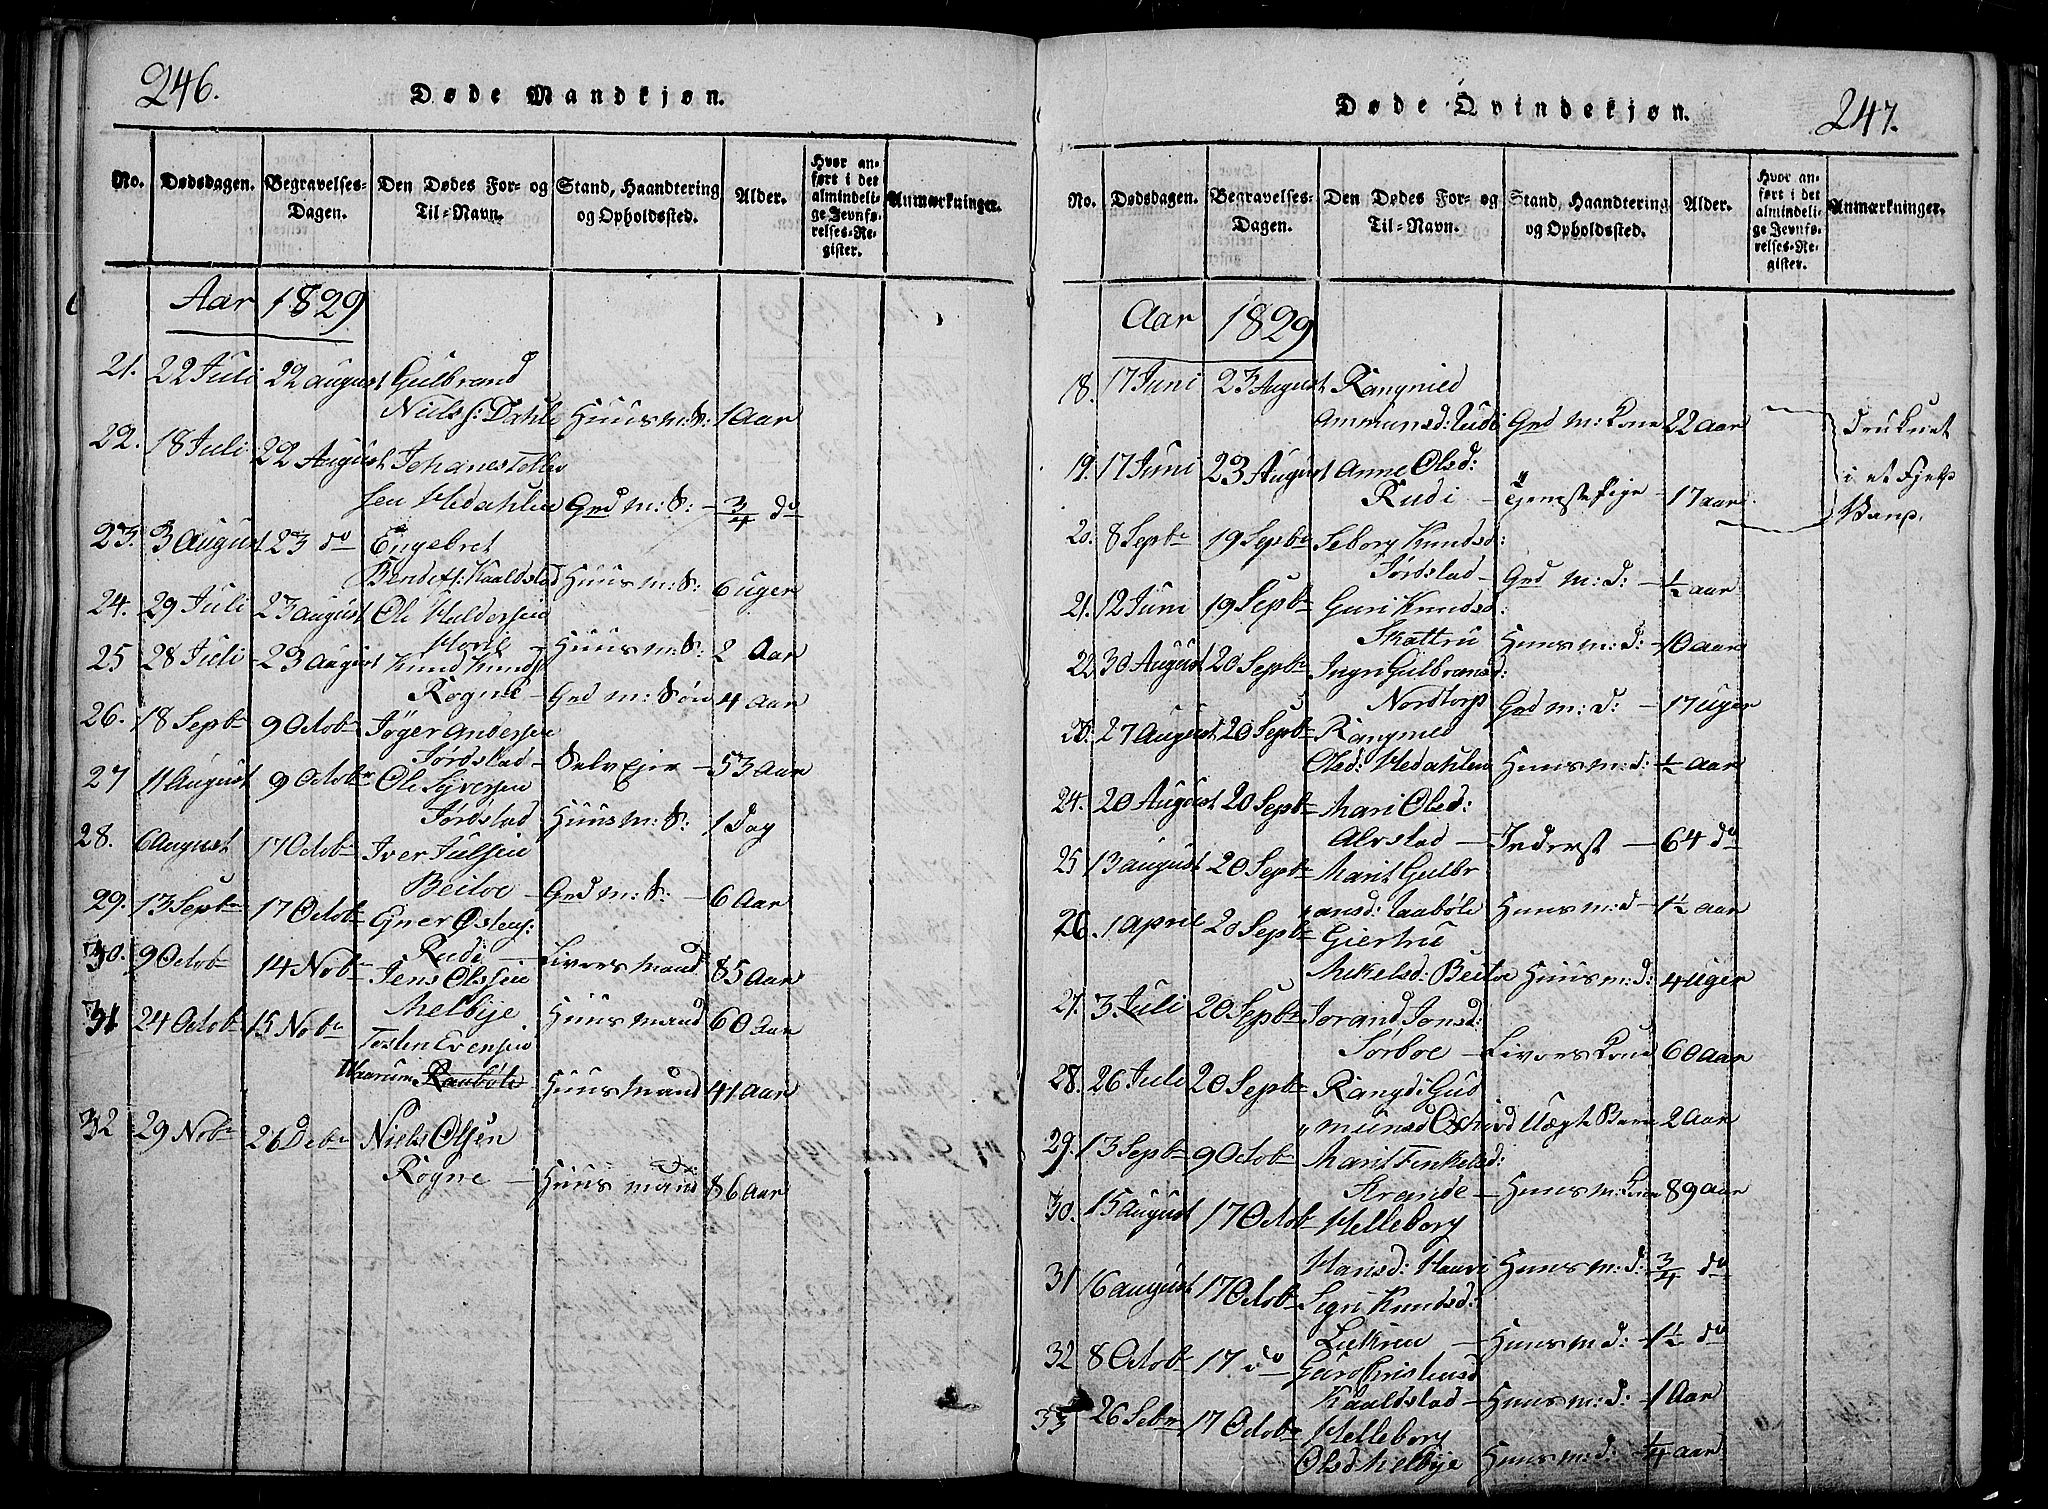 246.
Døde Mandkjøn.
No. Dødsdagen. Begravelses-Dagen. Den Dødes For- og Til-Navn. Stand, Haandtering og Opholdssted. Alder. Hvor anført i det almindelige Jevnførelses-Register. Anmærkninger.
Aar 1829
21. 22 Juli 22 august Gulbrand
Niels f: Dahle Huusm: S: 1 Aar
22. 18 Juli 22 August Johanes Tolle
sen Hedahlen Grd m: S: - 3/4 do
23. 3 August 23 do Engebret
Bendt f: Kaaldstad Huusm: S: 6 uger
24. 29 Juli 23 august Ole Haldorsen
Huusm: S: 2 Aar
25 28 Juli 23 August Knud Knuds
Rogne - Grd m: Søn 4 Aar
26. 18 Septr 9 Octobr Jøger Andersen
Jørdstad - Selv Ejer - 53 Aar
27 11 August 9 Octobr Ole Syversen
Jørdstad Huusm: S: 1 Dag
28. 6 August 17 Octobr Iver Julsen
Beitoe - Grd m: S: - 6 Aar
29. 13 Septr 17 Octobr Egner Østens:
Rudi - Livørs Mand 85 Aar
30. 9 Octob 14 Nobr Jens Olsen
Melbye Huusmand 60 Aar
31 24 Octobr 15 Nobr Tosten Evensen
Raabøle Huusmand 41 Aar
32 29 Nobr 26 Debr Niels Olsen
Rogne - Huusmand 86 Aar
247.
Døde Qvindekjøn.
No. Dødsdagen. Begravelses-Dagen. Den Dødes For- og Til-Navn. Stand, Haandtering og Opholdssted. Alder. Hvor anført i det almindelige Jevnførelses-Register. Anmærkninger.
Aar 1829
18. 17 Juni 23 August Rangnied
Ammunsd: Rudi Grd m: Kone 22 Aar Druknet
19. 17 Juni 23 August Anne Olsd:
Rudi - Tjenestepige - 17 aar i et Fjeld
Vand.
20. 8 Septr 19 Septr Seborg Knudsd:
Jørdstad - Grd m: D: - 1/2 aar
21. 12 Juni 19 Septr Guri Knudsd:
Skattru Huusm: D: - 10 Aar
22 30 August 20 Septr Ingri Gulbransd:
Nordtorp Grd m: D: - 17 Uger
23. 27 August 20 Septr Rangnied
Olsd: Hedahlen Huusm: D: 1/2 Aar
24. 20 August 20 Septr Mari Olsd:
Alvstad - Inderst - 64 do
25 13 august 20 Septr Marit Gulbr
ansd: Raabøle Huusm: D - 1 1/2 aar
26. 1 april 20 Septr Giertru
Mikelsd: Beitoe Huusm: D: 4 Uger
27. 3 Juli 20 Septr Jorand Jonsd:
Sørboe - Livørs Kone 60 Aar
28. 26 Juli 20 Septr Rangdi Gud
munsd Uægte Barn 2 Aar
29. 13 Septr 9 Octobr Marit Finkelsd:
Strande - Huusm: Kone 89 Aar
30. 15 August 17 Octobr Helleborg
Hansd: Huusm: D: 3/4 do
31 16 august 17 Octobr Sigri Knudsd:
Huusm: D: - 1 1/2 do
32 8 Octobr 17. do
Kaaldstad - Huusm: D: - 1 Aar
33 26 Sebr 17 Octobr Helleborg
Olsd Melbye Huusm: D: - 1/4 aar